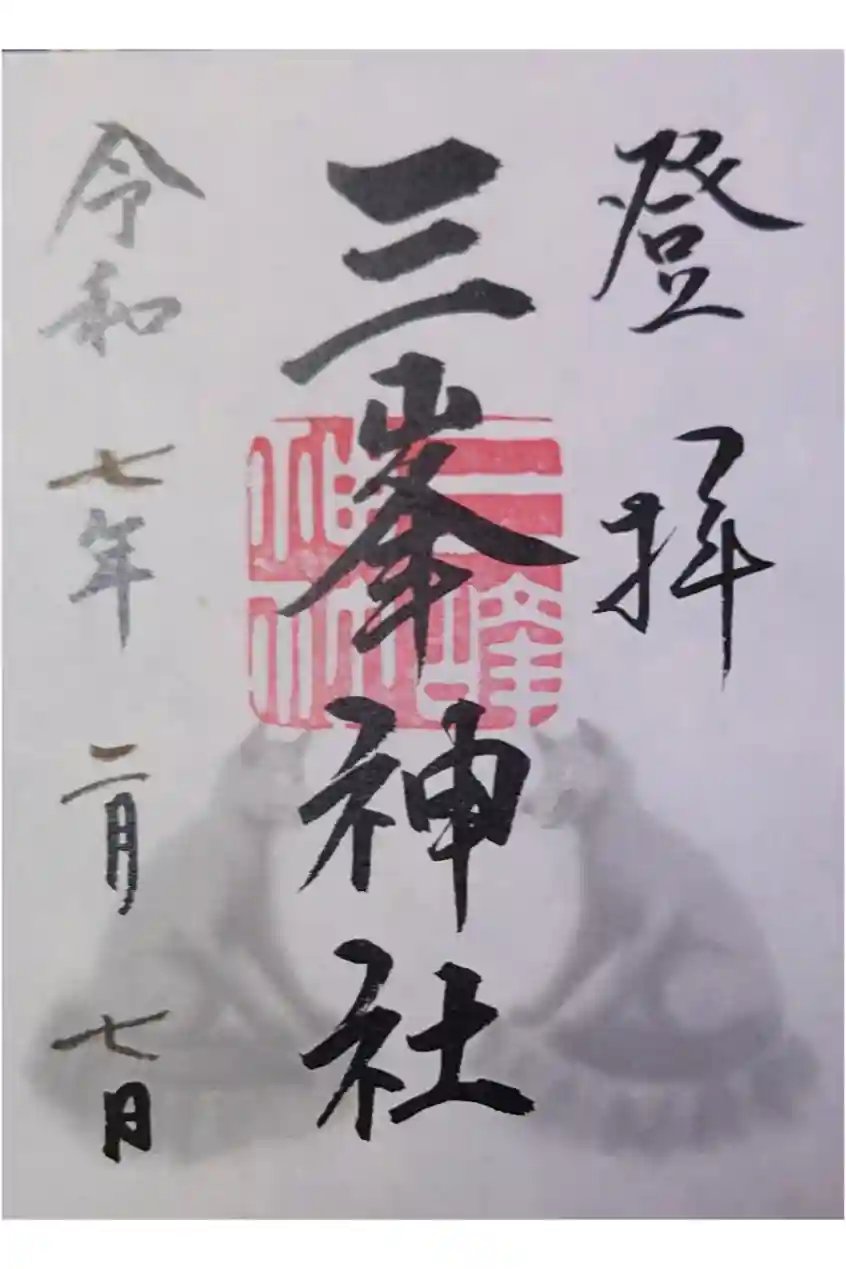 登拝
三峯神社
三峰神社
令和七年二月七日